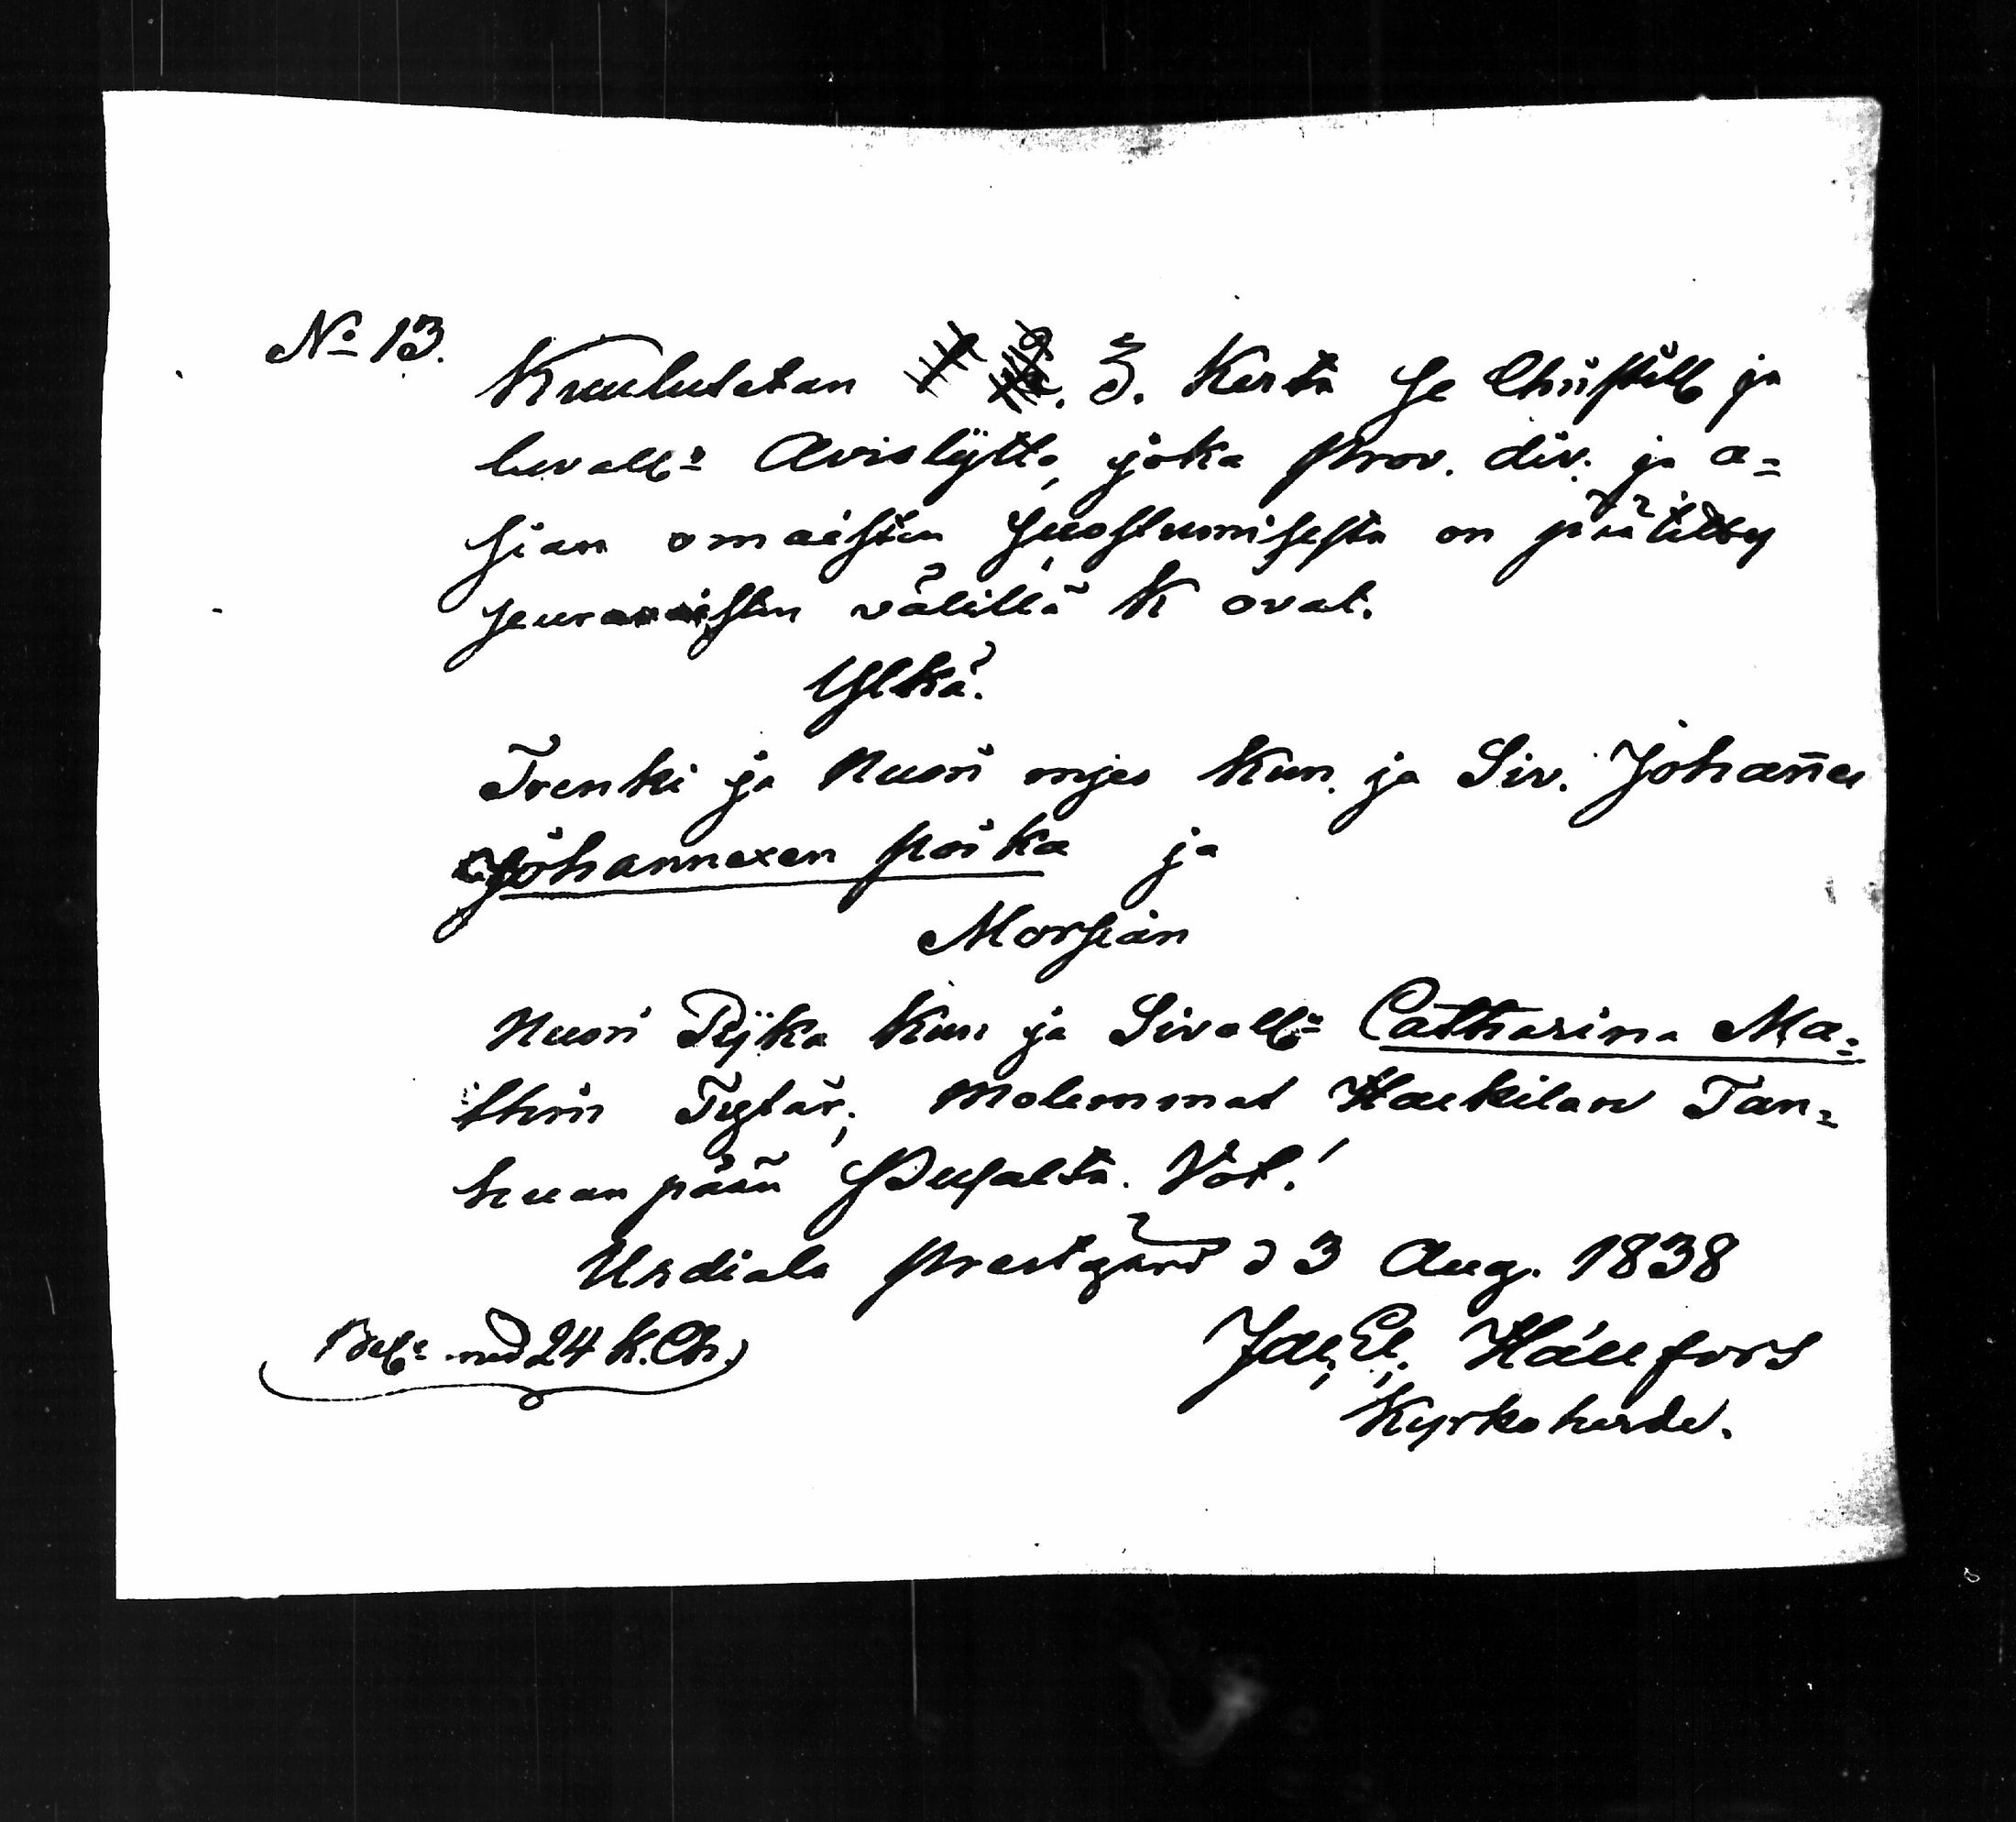 No 13.
Kuulutetan 3. Kerta se Christill ja
luvall: Avioskytto, joka prov. div. ja a=
sian omaisten suostumisesta on päätetty
seuravaisten välillä K ovat.
Ylkä.
Trenki ja Nuori mjes Kun. ja Siv. Johañes
Johannexen poika ja
Morsian
Nuori Pijka Kun: ja Sivall: Catharina Ma=
thin Tytär, molemmat Haekilan Tan=
huanpään Pusalta. Vot!
Urdiala prestgård d 3 Aug. 1838
Bel: med 24 k. Ch.
Jac. El. Hällfors
Kyrkoherde.